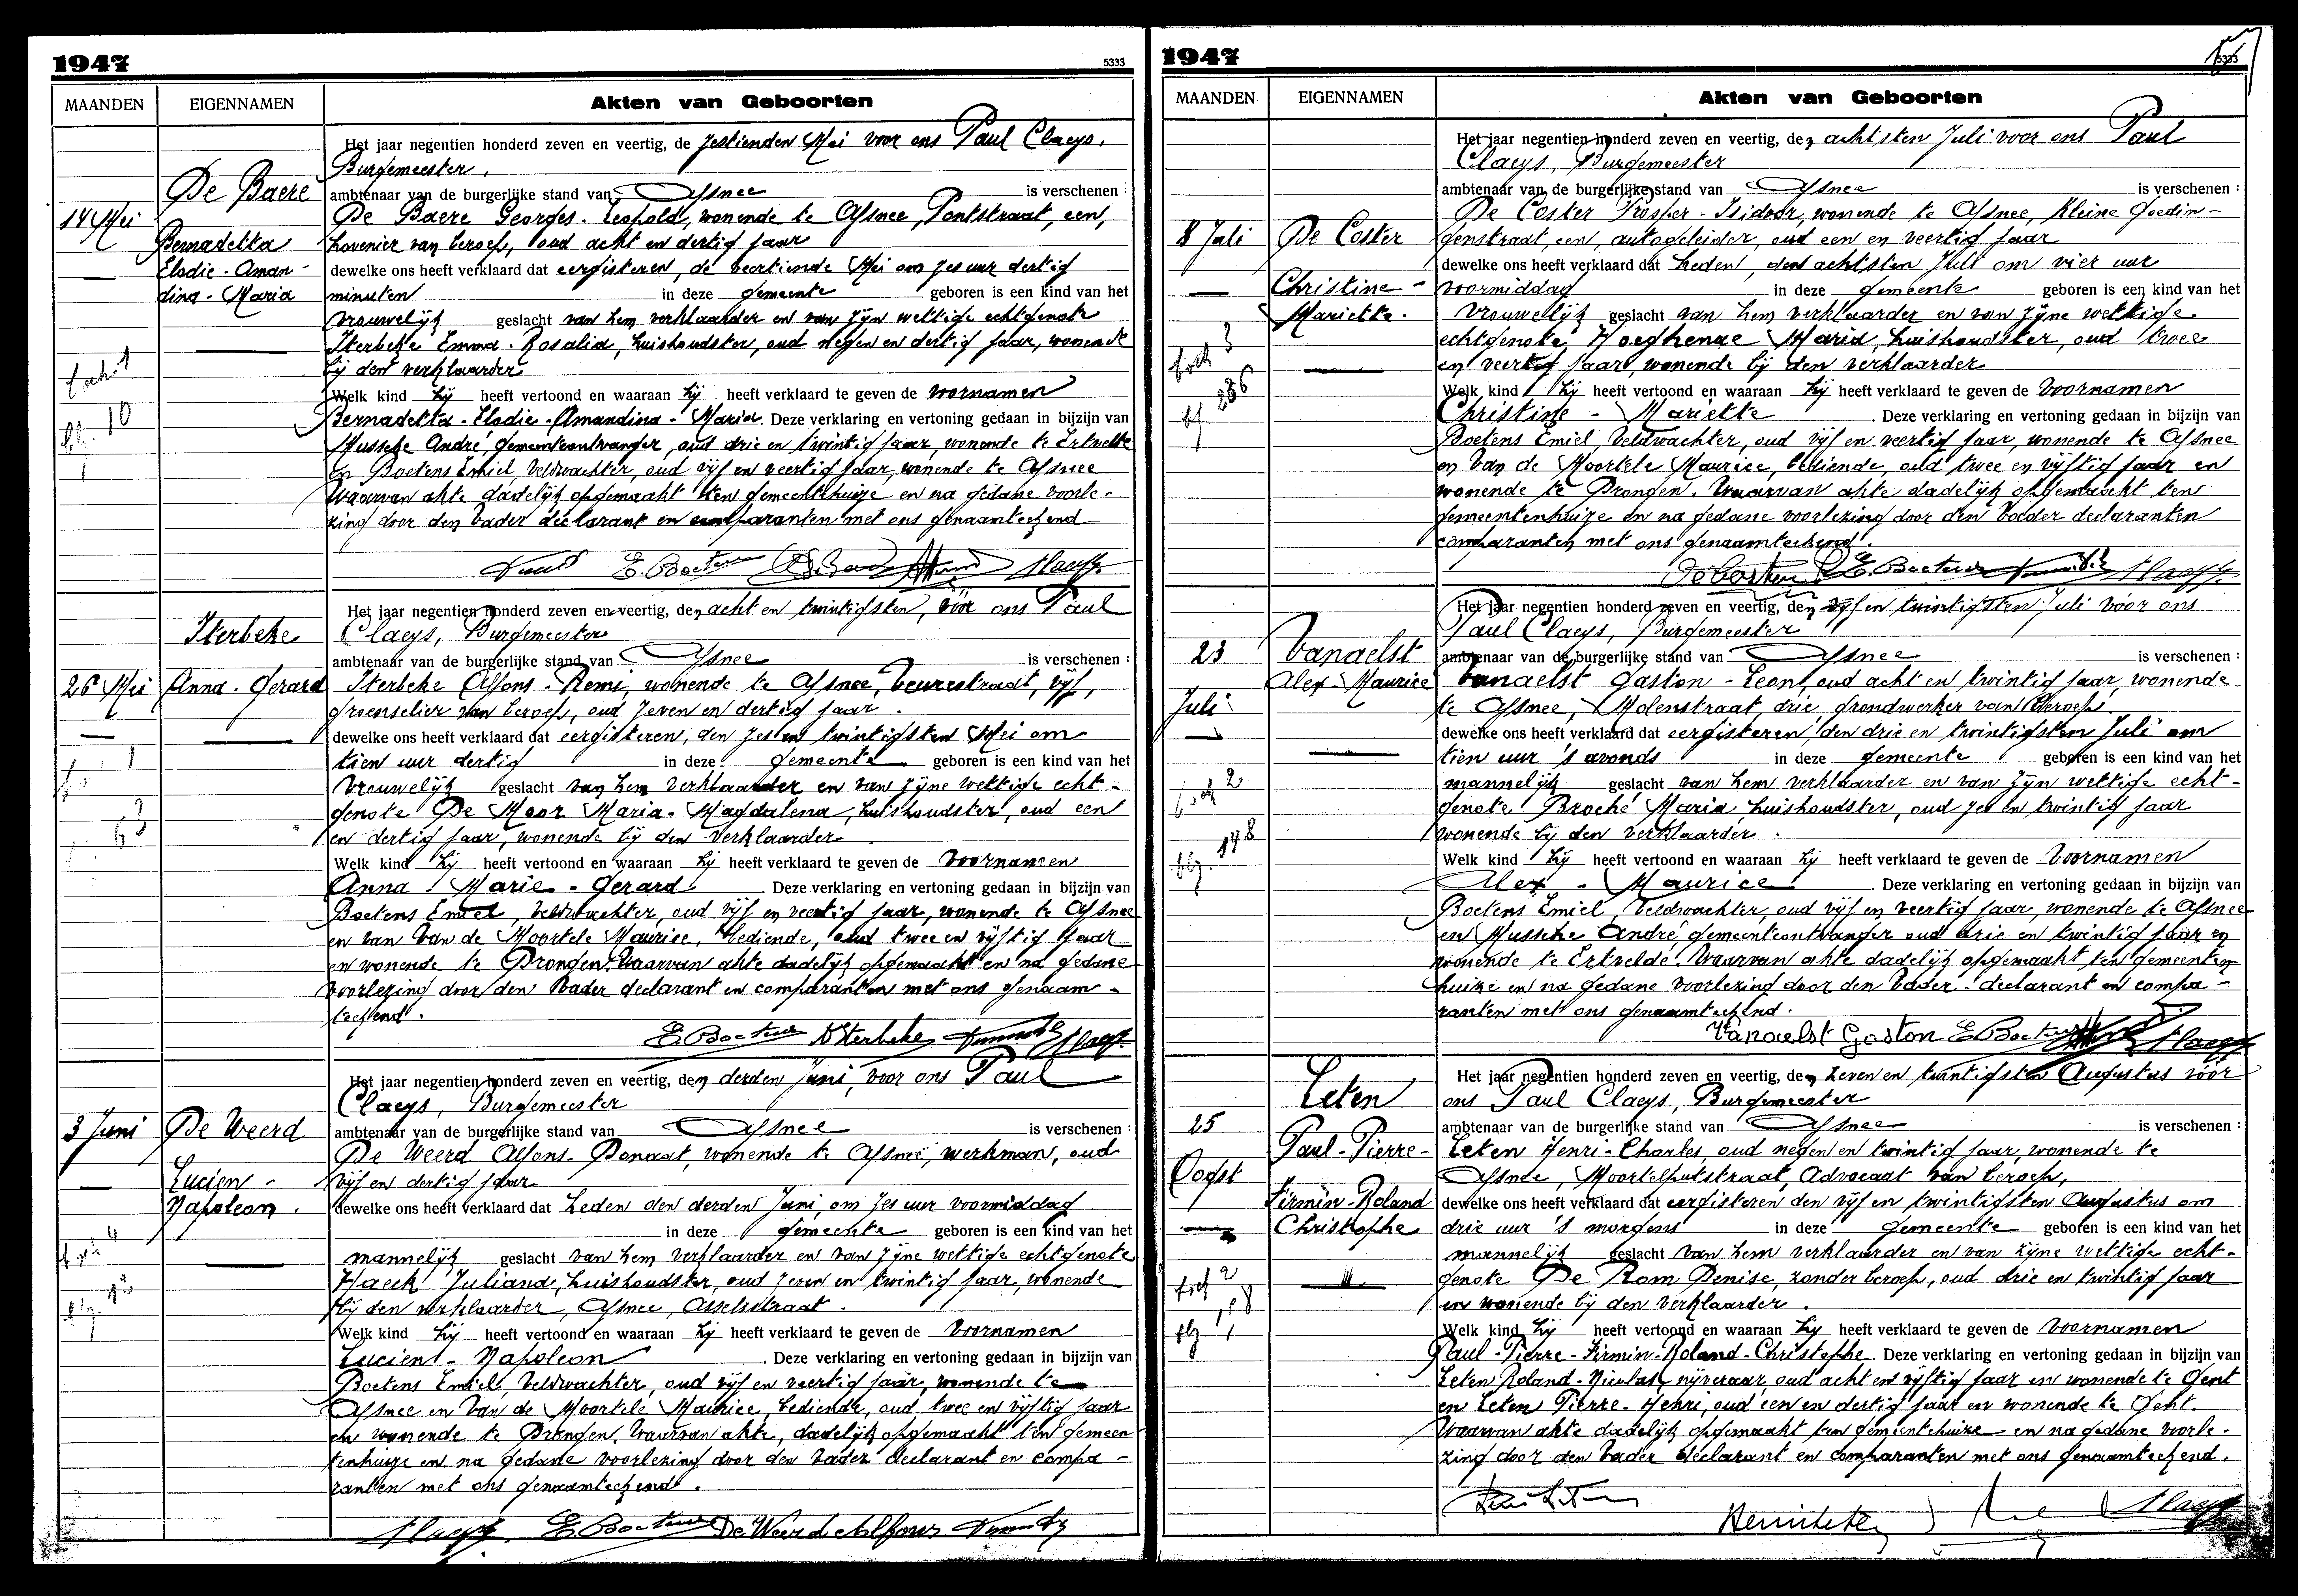 1947
5333
MAANDEN
EIGENNAMEN
Akten van Geboorten
Het jaar negentien honderd zeven en veertig, de zestienden Mei voor ons Paul Claeys,
Burgemeester,
ambtenaar van de burgerlijke stand van Afsnee is verschenen :
De Baere Georges-Leopold, wonende te Afsnee, Pontstraat, een,
hovenier van beroep, oud acht en dertig jaar
dewelke ons heeft verklaard dat eergisteren, de veertiende Mei om zes uur dertig
minuten in deze gemeente geboren is een kind van het
vrouwelijk geslacht van hem verklaarder en van zijn wettige echtgenote
Sterbeke Emma-Rosalia, huishoudster, oud negen en dertig jaar, wonende
bij den verklaarder
Welk kind hij heeft vertoond en waaraan hij heeft verklaard te geven de voornamen
Bernadetta-Elodie-Amandina-Maria. Deze verklaring en vertoning gedaan in bijzijn van
Mussche André, gemeenteontvanger, oud drie en twintig jaar, wonende te Ertvelde
en Boetens Emiel, Veldwachter, oud vijf en veertig jaar, wonende te Afsnee
Waarvan akte dadelijk opgemaakt ten gemeentehuize en na gedane voorle-
zing door den Vader declarant en comparanten met ons genaamtekend
De Baere
14 Mei
Bernadetta
Elodie-Aman-
dina-Maria
10
E. Boetens Claeys
Het jaar negentien honderd zeven en veertig, den acht en twintigsten, vóór ons Paul
Claeys, Burgemeester
ambtenaar van de burgerlijke stand van Afsnee is verschenen :
Sterbeke Alfons-Remi, wonende te Afsnee, Beurestraat, vijf,
groenselier van beroep, oud zeven en dertig jaar.
dewelke ons heeft verklaard dat eergisteren, den zes en twintigsten Mei om
tien uur dertig in deze gemeente geboren is een kind van het
vrouwelijk geslacht van hem verklaarder en van zijne wettige echt-
genote De Moor Maria-Magdalena, huishoudster, oud een
en dertig jaar, wonende bij den verklaarder
Welk kind hij heeft vertoond en waaraan hij heeft verklaard te geven de Voornamen
Anna-Marie-Gerard. Deze verklaring en vertoning gedaan in bijzijn van
Boetens Emiel, Veldwachter, oud vijf en veertig jaar, wonende te Afsnee
en van Van de Moortele Maurice, bediende, oud twee en vijftig jaar
en wonende te Drongen. Waarvan akte dadelijk opgemaakt en na gedane
voorlezing door den Vader declarant en comparanten met ons genaam-
tekend.
Sterbeke
26 Mei
Anna-Gerard
E. Boetens A Sterbeke Claeys
Het jaar negentien honderd zeven en veertig, den derden Juni, voor ons Paul
Claeys, Burgemeester
ambtenaar van de burgerlijke stand van Afsnee is verschenen :
De Weerd Alfons-Donaat, wonende te Afsnee, werkman, oud
vijf en dertig jaar
dewelke ons heeft verklaard dat heden den derden Juni, om zes uur voormiddag
in deze gemeente geboren is een kind van het
mannelijk geslacht van hem verklaarder en van zijne wettige echtgenote
Haeck Juliana, huishoudster, oud zeven en twintig jaar, wonende
bij den verklaarder, Afsnee, Asselsstraat.
Welk kind hij heeft vertoond en waaraan hij heeft verklaard te geven de Voornamen
Lucien-Napoleon. Deze verklaring en vertoning gedaan in bijzijn van
Boetens Emiel, Veldwachter, oud vijf en veertig jaar, wonende te
Afsnee en Van de Moortele Maurice, bediende, oud twee en vijftig jaar
en wonende te Drongen. Waarvan akte, dadelijk opgemaakt ten gemeen
tenhuize en na gedane voorlezing door den Vader declarant en compa-
ranten met ons genaamtekend.
De Weerd
3 Juni
Lucien-
Napoleon.
Claeys. E. Boetens De Weerd Alfons
1947
5333
MAANDEN
EIGENNAMEN
Akten van Geboorten
Het jaar negentien honderd zeven en veertig, den achtsten Juli voor ons Paul
Claeys, Burgemeester
ambtenaar van de burgerlijke stand van Afsnee is verschenen :
De Coster Prosper-Isidoor, wonende te Afsnee, Kleine Goedin-
genstraat, een, autogeleider, oud een en veertig jaar
dewelke ons heeft verklaard dat heden, den achtsten Juli om vier uur
voormiddag in deze gemeente geboren is een kind van het
vrouwelijk geslacht van hem verklaarder en van zijne wettige
echtgenote, Maria, huishoudster, oud twee
en veertig jaar, wonende bij den verklaarder
Welk kind hij heeft vertoond en waaraan hij heeft verklaard te geven de Voornamen
Christine-Mariette. Deze verklaring en vertoning gedaan in bijzijn van
Boetens Emiel, Veldwachter, oud vijf en veertig jaar, wonende te Afsnee
en Van de Moortele Maurice, bediende, oud twee en vijftig jaar en
wonende te Drongen. Waarvan akte dadelijk opgemaakt ten
gemeentenhuize en na gedane voorlezing door den Vader declaranten
comparanten met ons genaamtekend.
8 Juli
De Coster
Christine-
Mariette.
De Coster E. Boetens Claeys
Het jaar negentien honderd zeven en veertig, den vijf en twintigsten Juli vóór ons
Paul Claeys, Burgemeester
ambtenaar van de burgerlijke stand van Afsnee is verschenen :
Vanaelst Gaston-Leon, oud acht en twintig jaar, wonende
te Afsnee, Molenstraat, drie, grondwerker van Beroep.
dewelke ons heeft verklaard dat eergisteren, den drie en twintigsten Juli om
tien uur 's avonds in deze gemeente geboren is een kind van het
mannelijk geslacht van hem verklaarder en van zijn wettige echt-
genote Broché Maria, huishoudster, oud zes en twintig jaar
wonende bij den Verklaarder.
Welk kind hij heeft vertoond en waaraan hij heeft verklaard te geven de Voornamen
Alex-Maurice. Deze verklaring en vertoning gedaan in bijzijn van
Boetens Emiel, Veldwachter, oud vijf en veertig jaar, wonende te Afsnee
en Mussche André, gemeenteontvanger oud drie en twintig jaar en
wonende te Ertvelde. Waarvan akte dadelijk opgemaakt ten gemeenten
huize en na gedane voorlezing door den Vader-declarant en compa-
ranten met ons genaamtekend.
23
Juli
Vanaelst
Alex-Maurice
Vanaelst Gaston E Boetens Claeys
Het jaar negentien honderd zeven en veertig, den zeven en twintigsten Augustus vóór
ons Paul Claeys, Burgemeester
ambtenaar van de burgerlijke stand van Afsnee is verschenen :
Leten Henri-Charles, oud negen en twintig jaar, wonende te
Afsnee, Moortelputstraat, Advocaat van beroep,
dewelke ons heeft verklaard dat eergisteren den vijf en twintigsten Augustus om
drie uur 's morgens in deze gemeente geboren is een kind van het
mannelijk geslacht van hem verklaarder en van zijne wettige echt-
genote De Rom Denise, zonder beroep, oud drie en twintig jaar
en wonende bij den Verklaarder.
Welk kind hij heeft vertoond en waaraan hij heeft verklaard te geven de Voornamen
Paul-Pierre-Firmin-Roland-Christophe. Deze verklaring en vertoning gedaan in bijzijn van
Leten Roland-Nicolas, nijveraar, oud acht en vijftig jaar en wonende te Gent
en Leten Pierre-Henri, oud een en dertig jaar en wonende te Gent.
Waarvan akte dadelijk opgemaakt ten gemeentehuize en na gedane voorle-
zing door den Vader declarant en comparanten met ons genaamtekend.
25
Oogst
Leten
Paul-Pierre-
Firmin-Roland
Christophe
Claeys